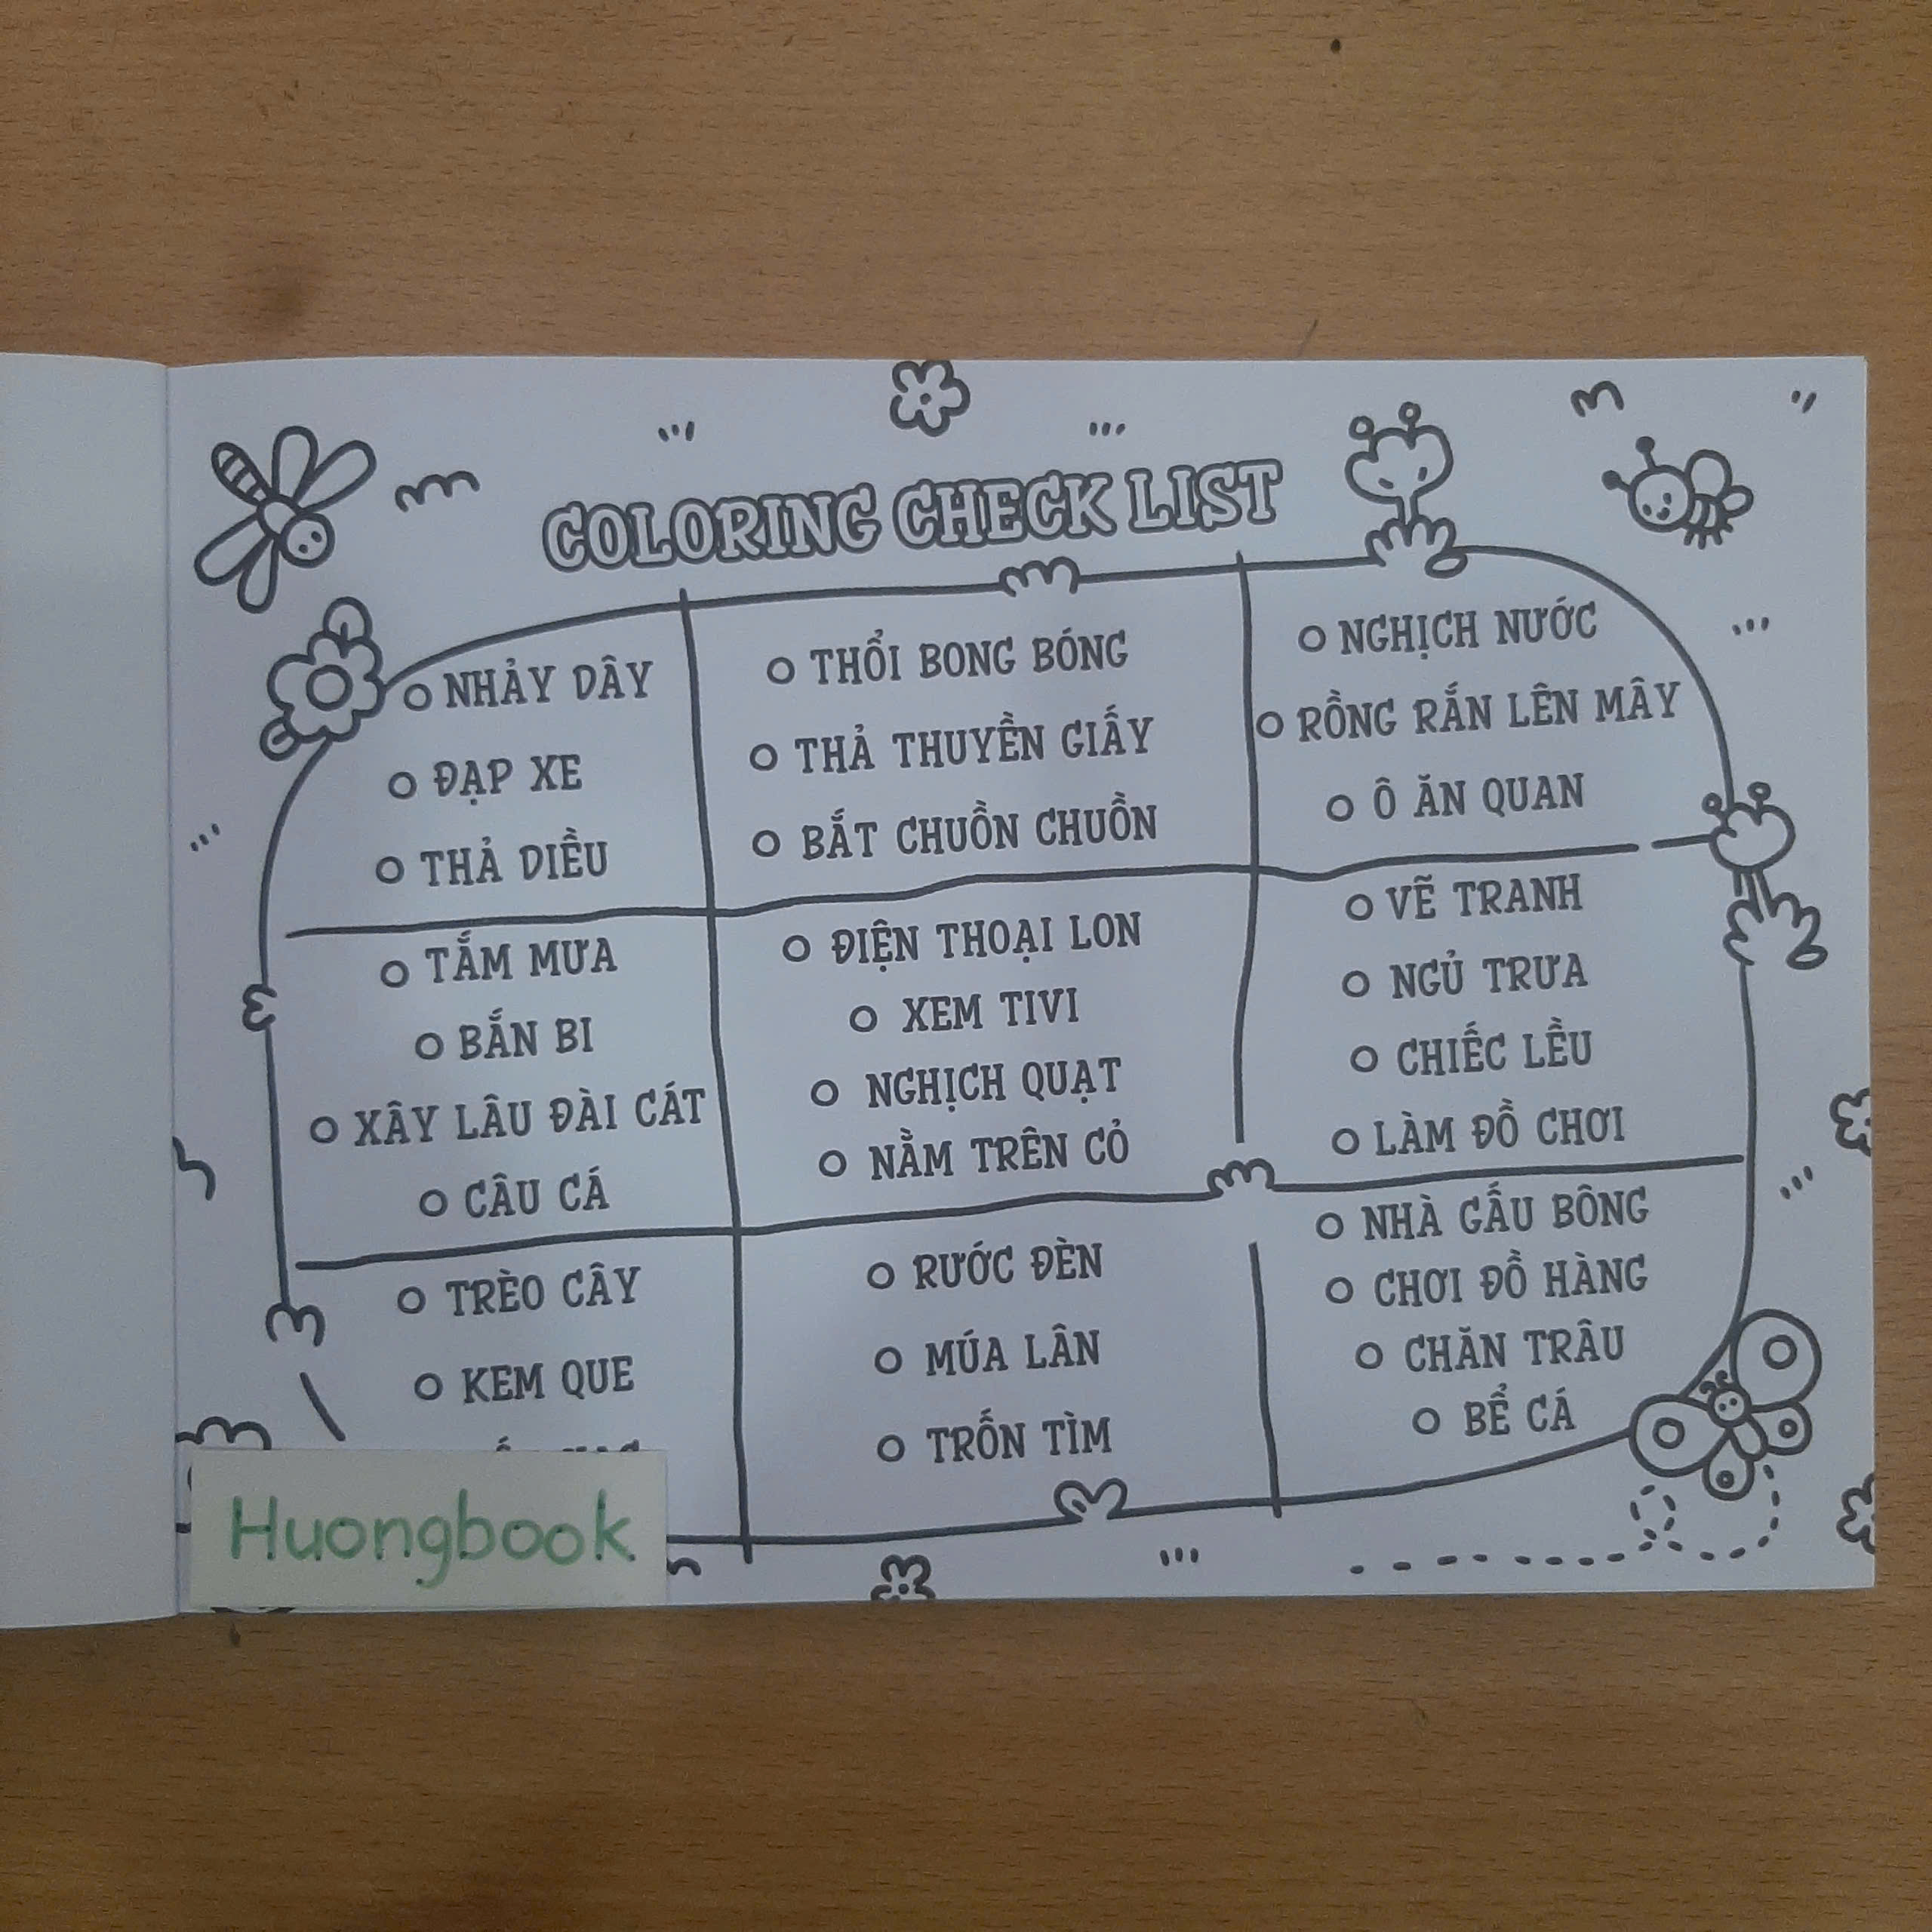 COLORING CHECK LIST
NHẢY DÂY
ĐẠP XE
THẢ DIỀU
THỔI BONG BÓNG
THẢ THUYỀN GIẤY
BẮT CHUỒN CHUỒN
NGHỊCH NƯỚC
RỒNG RẮN LÊN MÂY
Ô ĂN QUAN
TẮM MƯA
BẮN BI
XÂY LÂU ĐÀI CÁT
CÂU CÁ
ĐIỆN THOẠI LON
XEM TIVI
NGHỊCH QUẠT
NẰM TRÊN CỎ
VẼ TRANH
NGỦ TRƯA
CHIẾC LỀU
LÀM ĐỒ CHƠI
TRÈO CÂY
KEM QUE
RƯỚC ĐÈN
MÚA LÂN
TRỐN TÌM
NHÀ GẤU BÔNG
CHƠI ĐỒ HÀNG
CHĂN TRÂU
BỂ CÁ
Huongbook